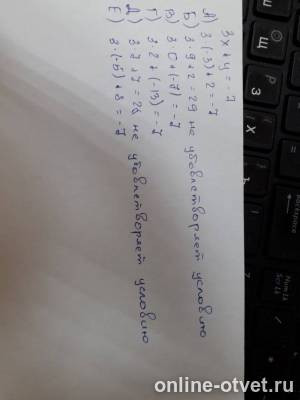 3x+y=-7
А) 3·(-3)+2=-7
Б) 3·9+2=29 не удовлетворяет условию
В) 3·0+(-7)=-7
Г) 3·2+(-13)=-7
Д) 3·7+7=28 не удовлетворяет условию
Е) 3·(-5)+8=-7
online-otvet.ru